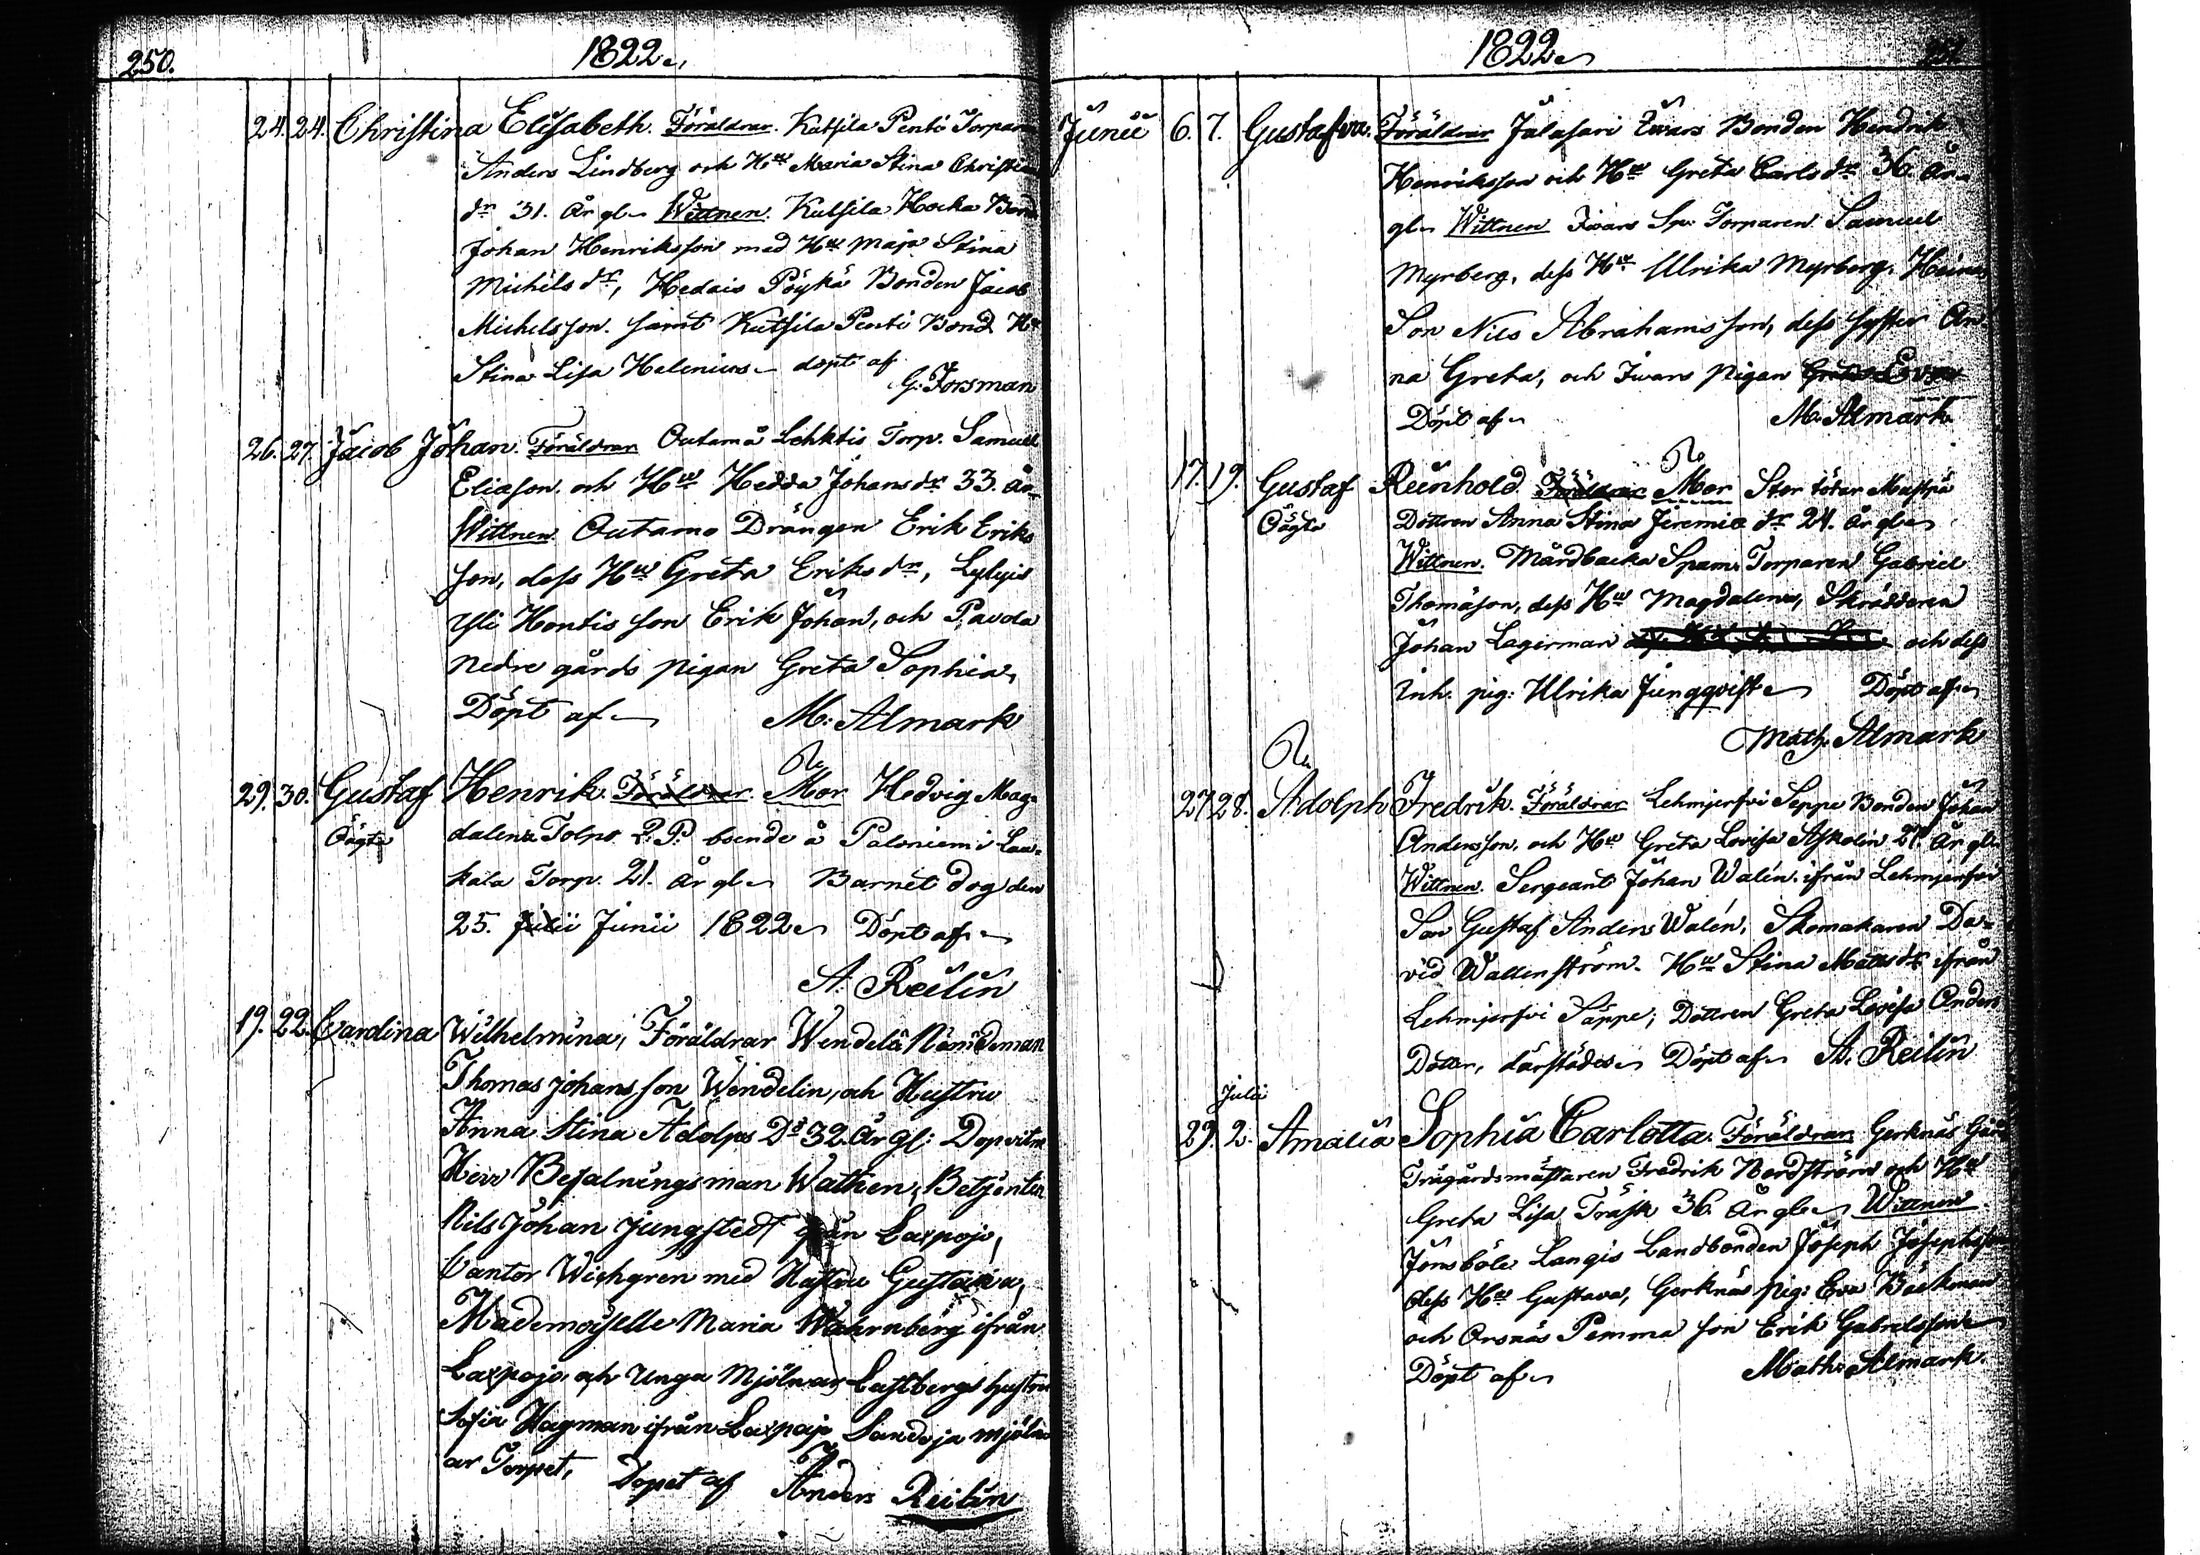 250.
1822.
24. 24. Christina Elisabeth. Föräldrar. Kutsila Penti Torparn
Anders Lindberg och Hust Maria Stina Christian
dr 31. År gl. Wittnen. Kutsila Hocka Bond
Johan Henriksson med Hust Maja Stina
Michels dr, Hedais Pöykä Bonden Jacob
Michelsson. samt Kutsila Penti Bond. Hu
Stina Lisa Helenius. döpt af
G. Forsman
26. 27. Jacob Johan. Föräldrar Outamå Lehktis Torp. Samuel
Eliason. och Hust Hedda Johans dr 33. År
Wittnen. Outamo Drängen Erik Eriks
son, dess Hust Greta Eriks dr, Lylyis
Yli Hontis son Erik Johan, och Pavola
nedre gårds pigan Greta Sophia,
Döpt af M: Almark
29. 30. Gustaf Henrik. Föräldrar. Mor Hedvig Mag-
Oägta dalena Tolpo P.P. boende å Paloniemi Lau-
kala Torp. 21. År gl. Barnet dog den
25. Julii Junii 1822 Döpt af
A. Reilin
19. 22. Carolina Wilhelmina, Föräldrar Wendelä Nämdeman
Thomas Johansson Wendelin, och Hustru
Anna Stina Adolps Dr 32 År gl: Dopvitn
Herr Befalningsman Wathen, Betjenten
Nils Johan Jungstedt från Laxpojo,
Cantor Wichgren med Hustru Gustava,
Mademoiselle Maria Wahrnberg ifrån
Laxpojo, och Unga Mjölnar Lastbergs hustru
Sofia Hagman ifrån Laxpojo Landoja mjöln
ar Torpet, Döpet af Anders Reilin
1822
251
Junii 6. 7. Gustafva. Föräldrar Jälasari Ivars Bonden Hendrik
Henriksson och Hust Greta Carls dr 36. År
gl. Wittnen Ivars Sp: Torparen Samuel
Myrberg, dess Hust Ulrika Myrberg, Heina
Son Nils Abrahamsson, dess syster An-
na Greta, och Ivars pigan Greta Eva
Döpt af M. Almark
17. 19. Gustaf Reinhold Föräldrar Mor Stor tötar Mastjä
Oägta Dottren Anna Stina Jeremiæ dr 24. År gl.
Wittnen. Mårdbacka Spam. Torparen Gabriel
Thomason, dess Hust Magdalena, Skräddaren
Johan Lagerman och dess
inh. pig: Ulrika Jungqvist Döpt af
Math. Almark
27 28. Adolph Fredrik. Föräldrar Lehmjerfvi Seppe Bonden Johan
Andersson, och Hust Greta Lovisa Askolin 27. År gl.
Wittnen. Sergeant Johan Walin. ifrån Lehmjerfvi
Son Gustaf Anders Walén, Skomakaren Da-
vid Wallenström. Hust Stina Matts dr ifrån
Lehmjerfvi Säppe, Dottren Greta Lovisa Anders
Dotter, därstädes Döpt af A. Reilin
Julii
29. 2. Amalia Sophia Carlotta. Föräldrar Gerknäs Gård
Trägårdsmästaren Fredrik Nordström och Hust
Greta Lisa Träsk 36. År gl. Wittnen
Jönsböle Langis Landbonden Joseph Josephsson
dess Hust Gustava, Gerknäs pig: Eva Böckman
och Orsnäs Pemma son Erik Gabrielsson
Döpt af Math: Almark.